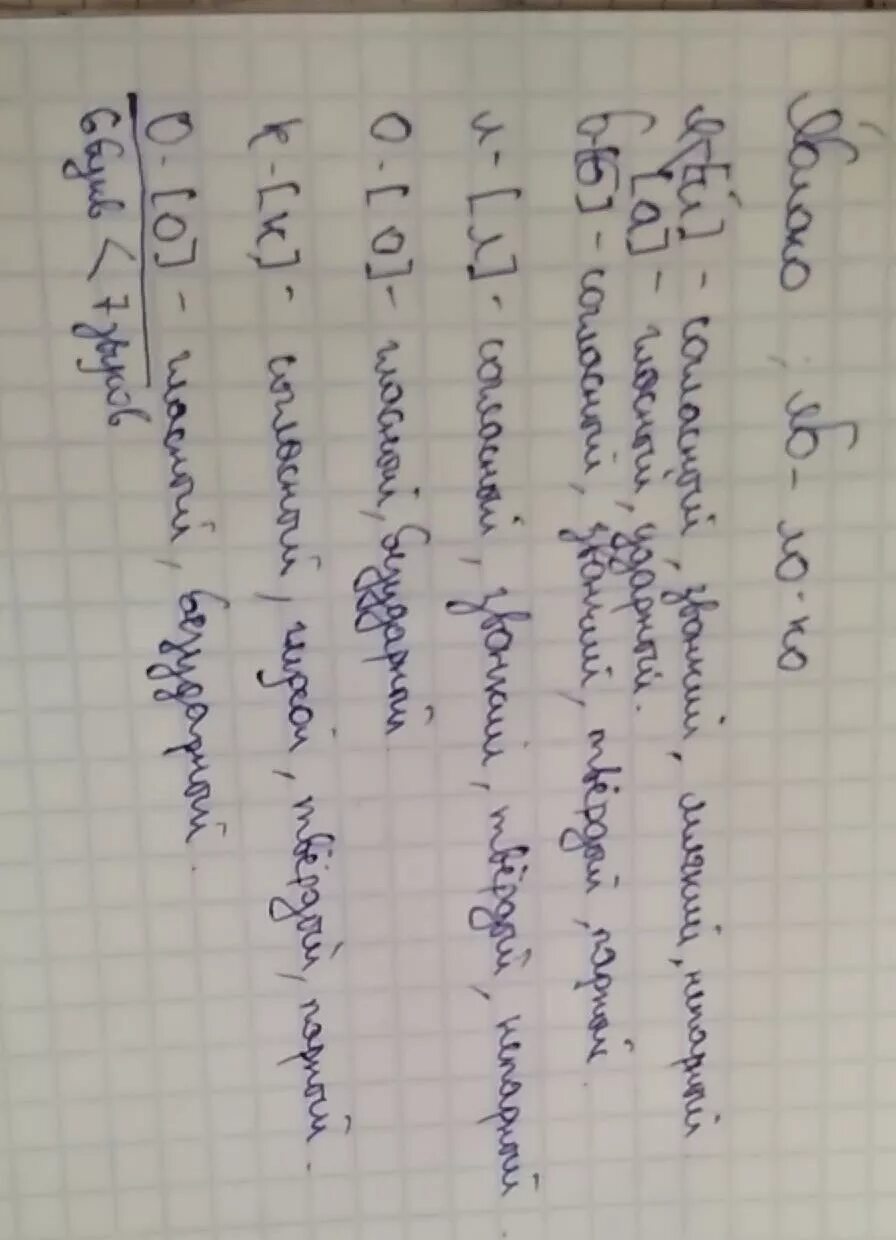 Яблоко, яб-ло-ко
Я-[й] - согласный, звонкий, мягкий, непарный
[а] - гласный, ударный.
б-[б] - согласный, звонкий, твёрдый, парный.
л-[л] - согласный, звонкий, твёрдый, непарный
о-[о] - гласный, безударный
к-[к] - согласный, глухой, твёрдый, парный.
о-[о] - гласный, безударный.
6 букв < 7 звуков